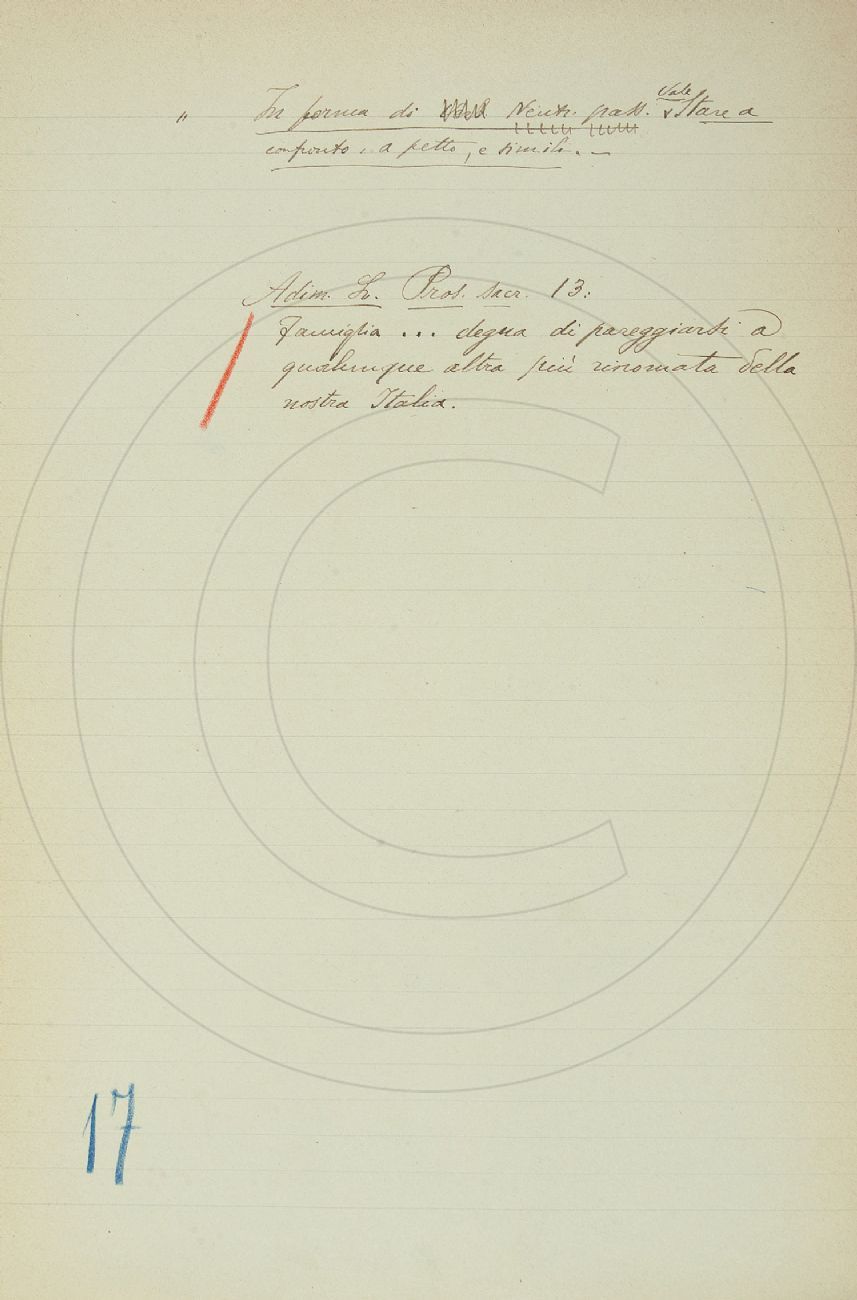 " In forma di Neutr. pass. Vale Stare a
confronto, a petto, e simili. —
Adim. L. Pros. sacr. 13:
Famiglia ... degna di pareggiarsi a
qualunque altra più rinomata della
nostra Italia.
17